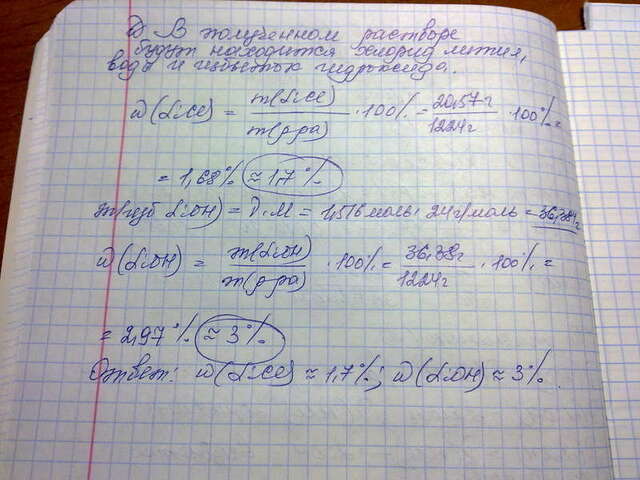 Д) В полученном растворе
будут находится хлорид лития,
вода и избыток гидроксида.
ω(LiCl) = m(LiCl) / m(р-ра) · 100% = 20,57г / 1224г · 100% =
= 1,68% ≈ 1,7%
m(изб LiOH) = ν·M = 1,516моль · 24г/моль = 36,384г
ω(LiOH) = m(LiOH) / m(р-ра) · 100% = 36,38г / 1224г · 100% =
= 2,97% ≈ 3%
Ответ: ω(LiCl) ≈ 1,7%; ω(LiOH) ≈ 3%.